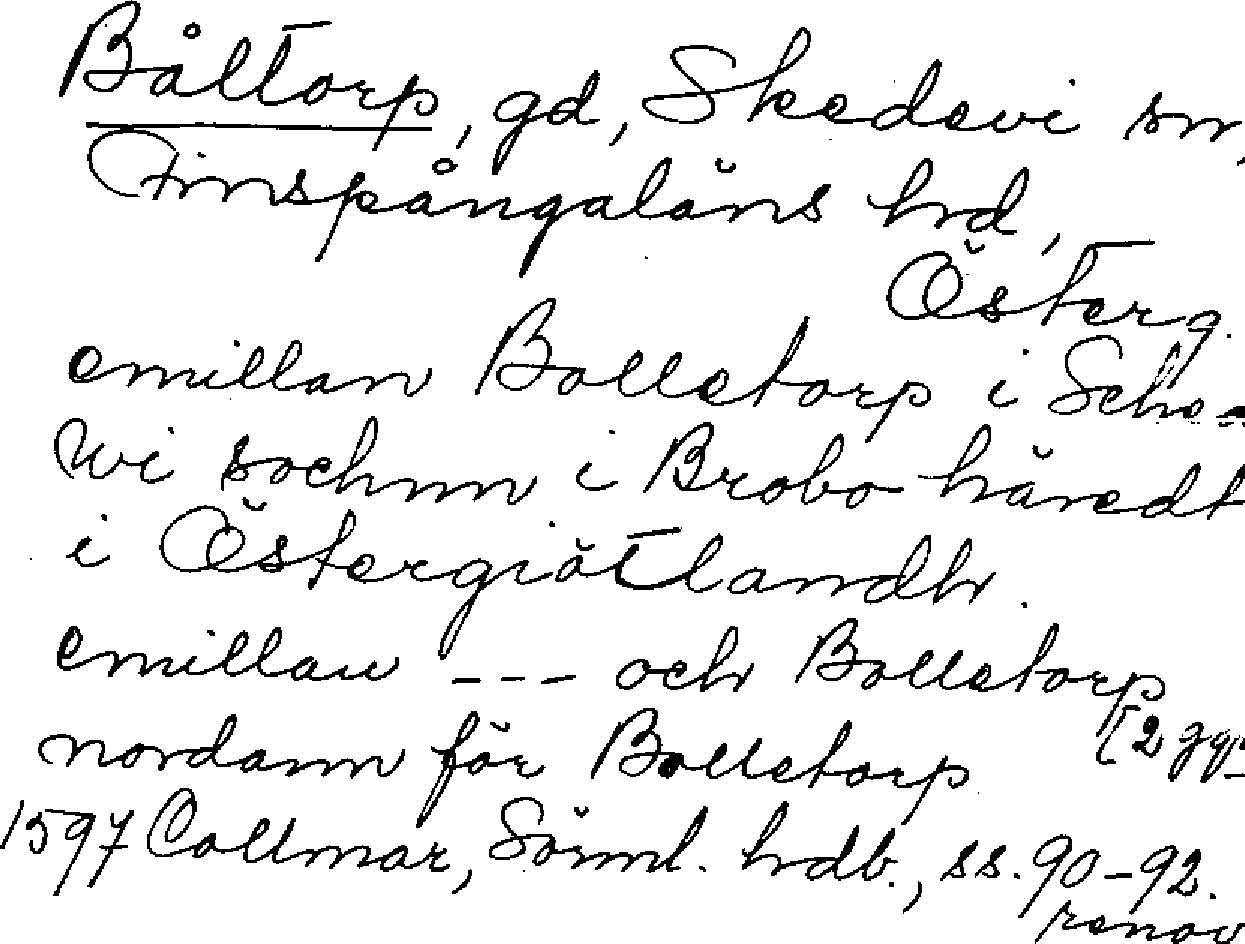 Båltorp, gd, Skedevi sn,
Finspångaläns hd,
Österg.
emillan Bolletorp i Sche-
wi sochnn i Brobo häredt
i Östergiötlandh.
emillan --- och Bolletorp
[2 ggr
nordann för Bolletorp
1597 Collmar, Sörml. hdb., ss. 90-92.
renov